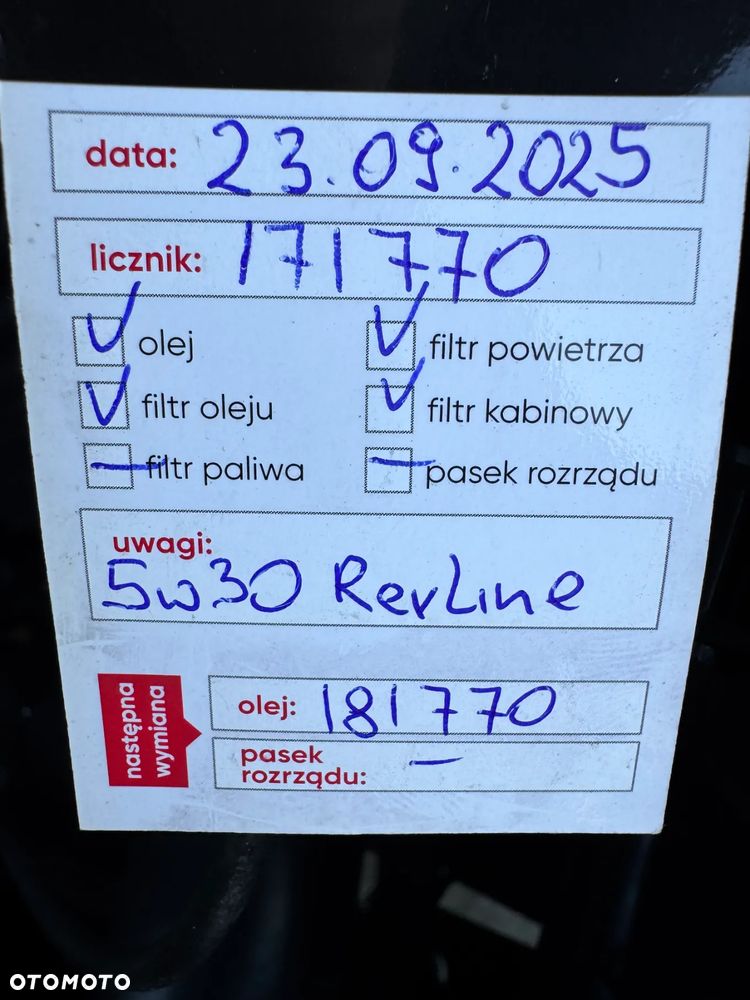 data: 23.09.2025
licznik: 171770
olej filtr powietrza
filtr oleju filtr kabinowy
filtr paliwa pasek rozrządu
uwagi:
5w30 RevLine
następna
wymiana
olej: 181770
pasek
rozrządu: —
OTOMOTO